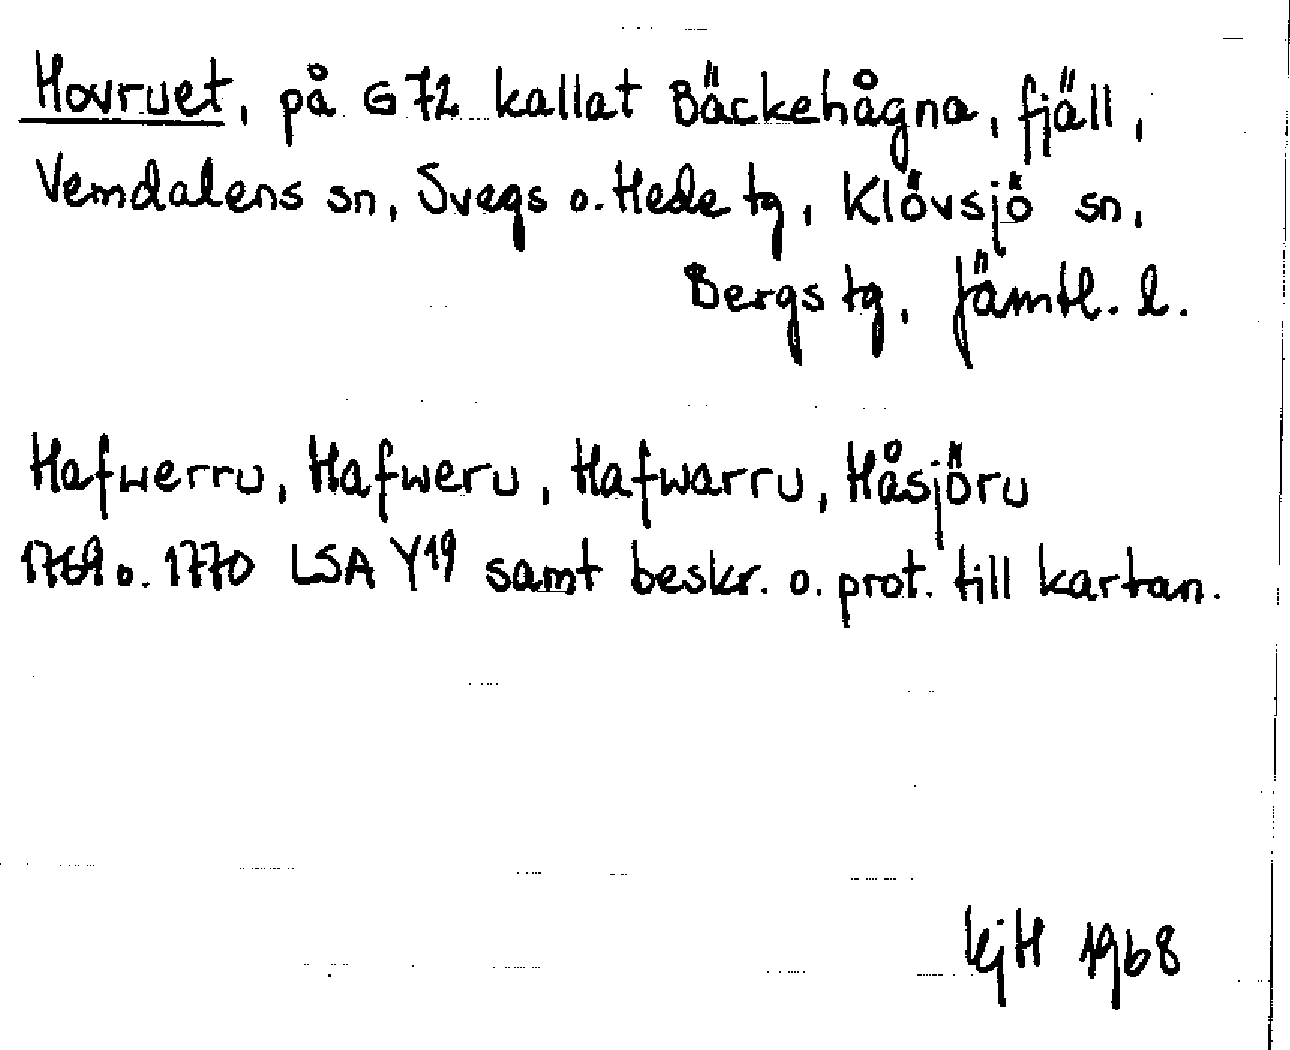 Hovruet, på G72 kallat Bäckehågna, fjäll,
Vemdalens sn, Svegs o. Hede tg, Klövsjö sn,
Bergs tg, Jämtl. l.
Hafwerru, Hafweru, Hafwarru, Håsjöru
1769 o. 1770 LSA Y19 samt beskr. o. prot. till kartan.
KjH 1968